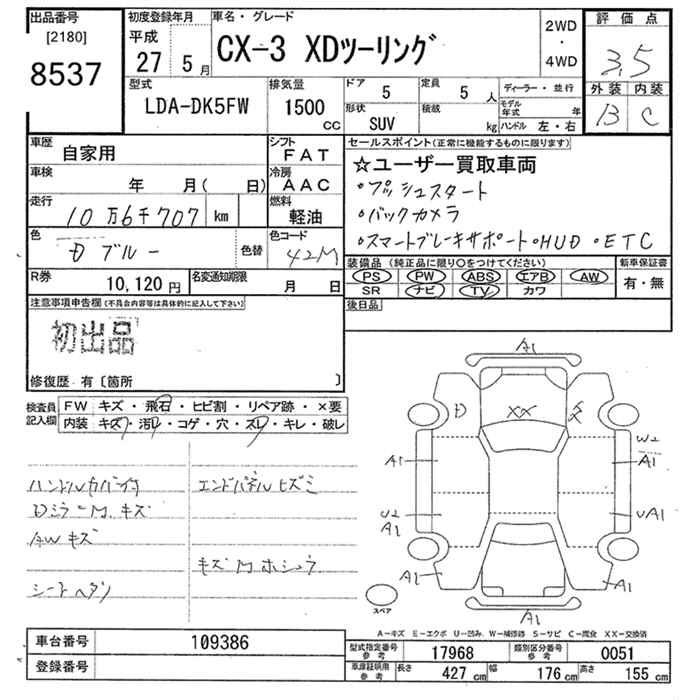 出品番号 [2180] 8537
初度登録年月 平成 27 5月
車名・グレード CX-3 XDツーリング
2WD ・ 4WD
評価点 3.5
外装 B 内装 C
型式 LDA-DK5FW
排気量 1500 CC
ドア 5
定員 5 人
形状 SUV
積載 kg
ディーラー・並行
モデル年式 年
ハンドル 左・右
車歴 自家用
シフト FAT
車検 年 月( 日)
冷房 AAC
走行 10万6千707 km
燃料 軽油
色 Dブルー 色替
色コード 42M
R券 10,120円
名変通知期限 月 日
セールスポイント(正常に機能する物に限ります)
☆ユーザー買取車両
・プッシュスタート
・バックカメラ
・スマートブレーキサポート・HUD・ETC
装備品(純正品に限り〇をつけてください)
PS PW ABS エアB AW
SR ナビ TV カワ
新車保証書 有・無
後日品
注意事項申告欄(不具合内容等は具体的に記入して下さい)
初出品
修復歴・有〔箇所 〕
検査員記入欄
FW キズ・飛石・ヒビ割・リペア跡・×要
内装 キズ・汚レ・コゲ・穴・スレ・キレ・破レ
ハンドルカバー付
Dミラー M.キズ
AWキズ
シートヘタリ
エンドパネルヒズミ
キズMホシュウ
A1
D XX
A1 W2 A1
U2 A1 UA1
A1 A1
A1
スペア
A-キズ E-エクボ U-凹み W-補修跡 S-サビ C-腐食 XX-交換済
車台番号 109386
登録番号
型式指定番号 参考 17968
類別区分番号 参考 0051
車庫証明用 参考 長さ 427 cm 幅 176 cm 高さ 155 cm